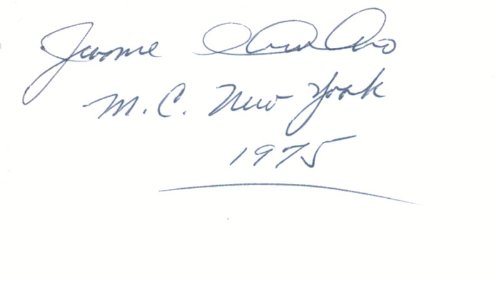 Jerome
M.C. New York
1975